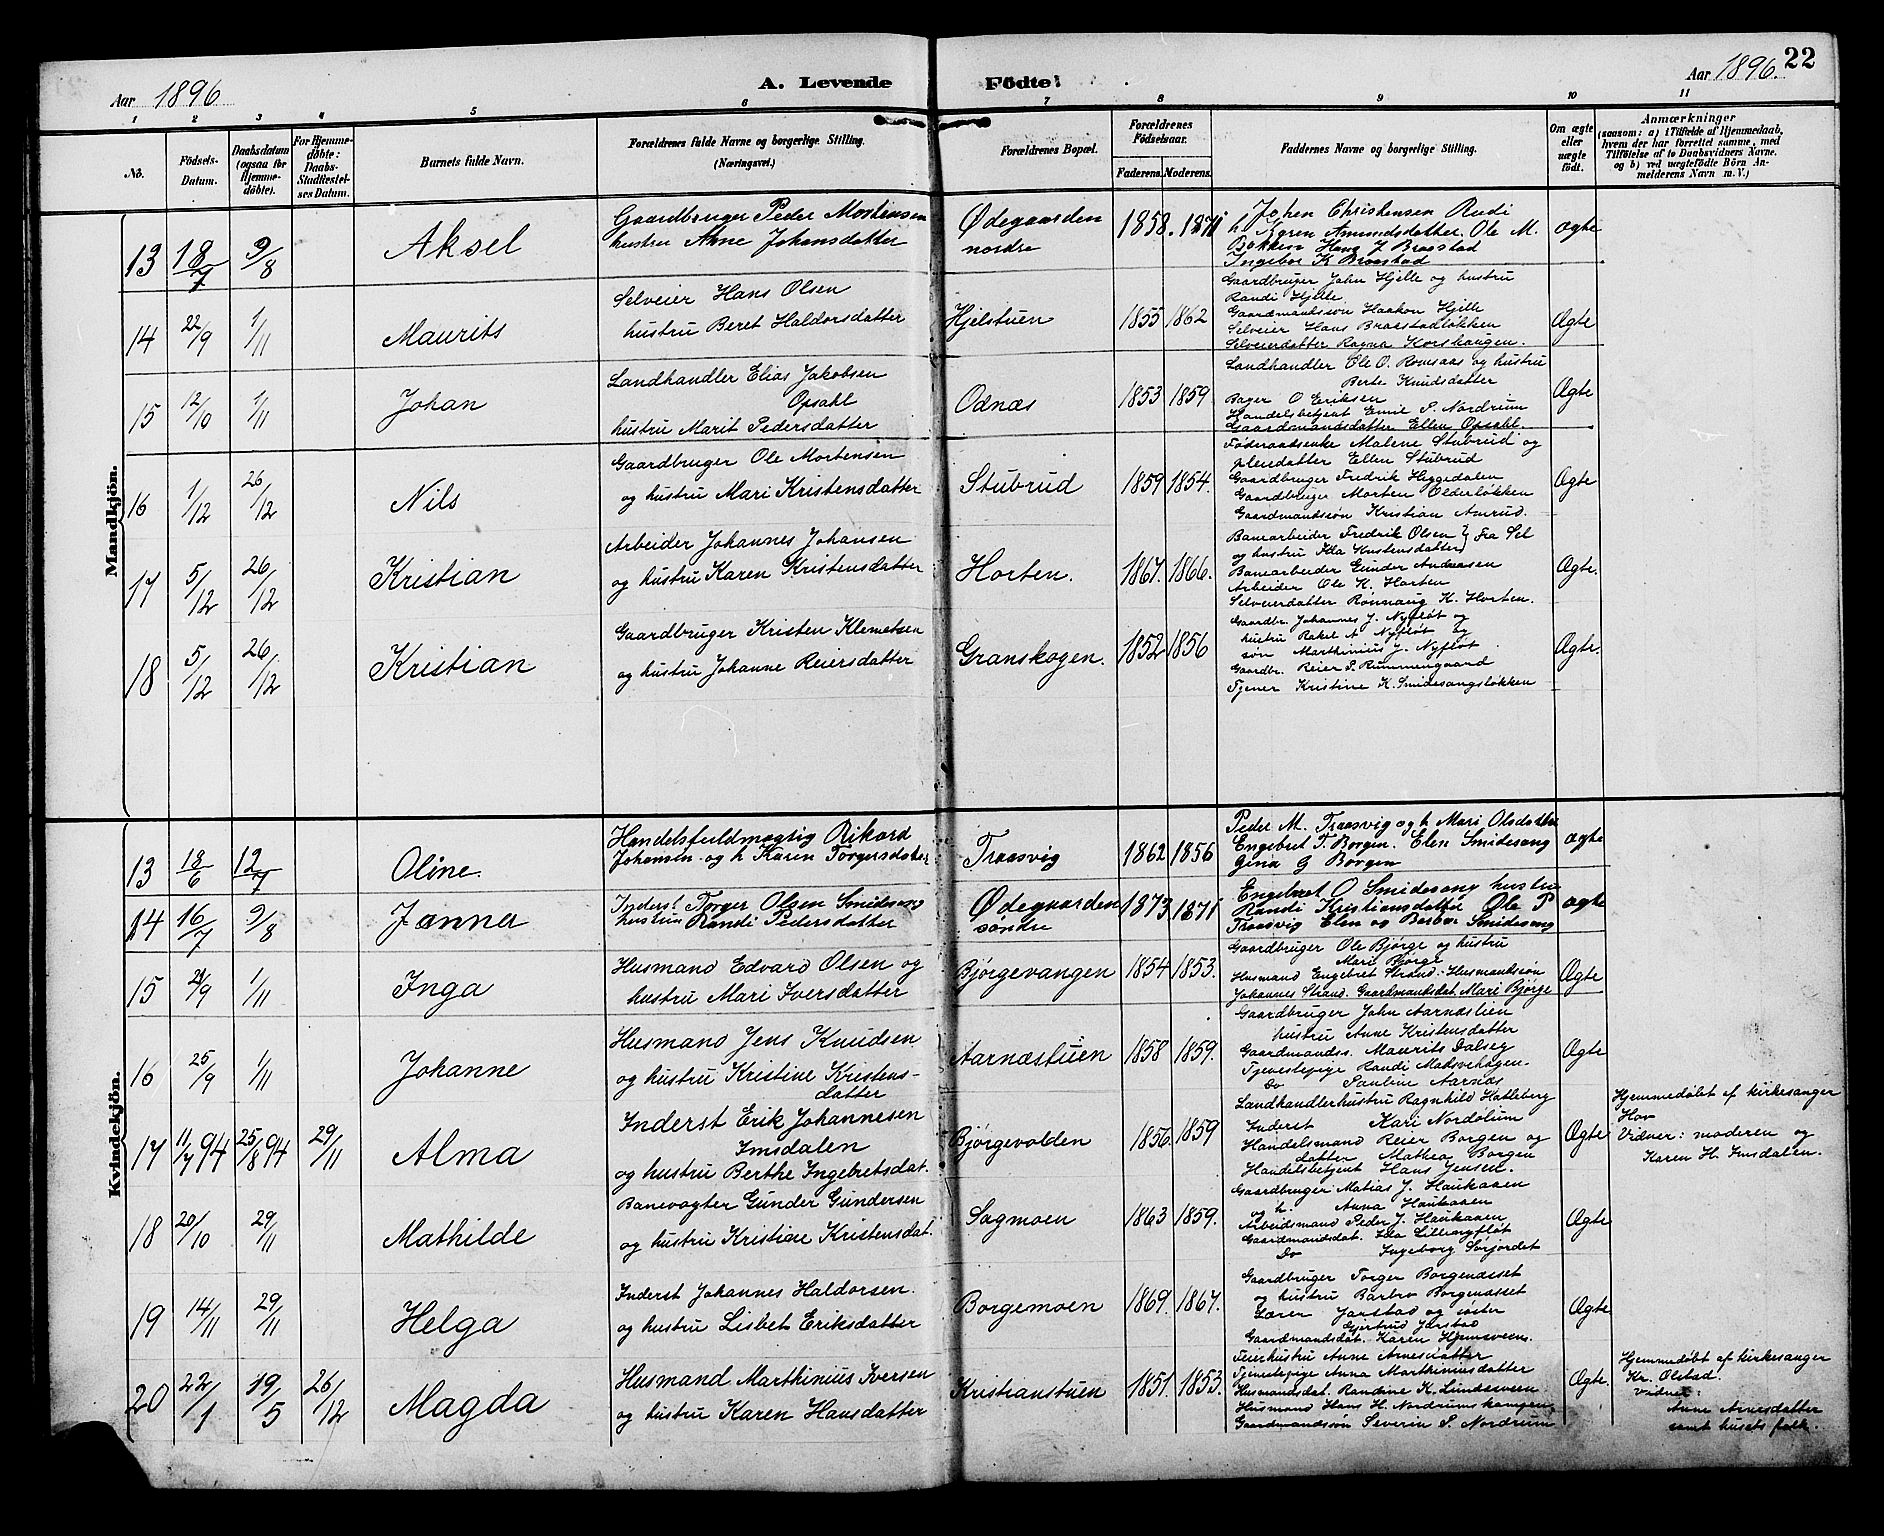 Aar 1896
A. Levende Födte.
Aar 1896. 22
1 2 3 4 5 6 7 8 9 10 11
No.
Födsels-Datum.
Daabsdatum (ogsaa for Hjemmedöbte).
For Hjemmedöbte: Daabs-Stadfestelses Datum.
Barnets fulde Navn.
Forældrenes fulde Navne og borgerlige Stilling.
(Næringsvei.)
Forældrenes Bopæl.
Forældrenes Födselsaar.
Faderens. Moderens.
Faddernes Navne og borgerlige Stilling.
Om ægte eller uægte födt.
Anmærkninger
(saasom: a) i Tilfælde af Hjemmedaab,
hvem der har forrettet samme, med
Tilföielse af to Daabsvidners Navne.
og b) ved uægtefödte Börn An-
melderens Navn m. V.)
Mandkjön.
13 18/7 9/8 Aksel
Gaardbruger Peder Mortensen
hustru Anne Johansdatter
Ødegaarden
nordre
1858. 1871
Johen Christensen Rudi
h. Karen Amundsdatter. Ole M.
Bakken Hans J Braastad
Ingebor K Braastad
ægte
14 22/9 1/11 Maurits
Selveier Hans Olsen
hustru Beret Haldorsdatter
Hjelstuen
1855 1862
Gaardbruger John Hjelle og hustru
Randi Hjelle.
Gaardmandssøn Haakon Hjelle
Selveier Hans Braastadløkken
Selveierdatter Ragna Korshaugen.
Ægte
15 12/10 1/11 Johan
Landhandler Elias Jakobsen
Opsahl
hustru Marit Pedersdatter
Odnæs
1853 1859
Landhandler Ole O. Romsaas og hustru
Berte Knudsdatter
Bager O Eriksen
Handelsbetjent Emil P. Nordrum
Gaardmandsdatter Ellen Opsahl.
Ægte
16 1/12 26/12 Nils
Gaardbruger Ole Mortensen
og hustru Mari Kristensdatter
Stubrud
1859 1854.
Føderaadsenke Malene Stubrud og
pleiedatter Ellen Stubrud
Gaardbruger Fredrik Heggedalen
Gaardbruger Morten Olderløkken
Gaardmandssøn Kristian Amrud.
Ægte
17 5/12 26/12 Kristian
Arbeider Johannes Johansen
og hustru Karen Kristensdatter
Horten.
1867. 1866.
Banearbeider Fredrik Olsen } fra Sel
og hustru Ida Kustensdatter
Banearbeider Gunder Andreasen
Arbeider Ole K. Horten
Selveierdatter Rønnaug K. Horten.
Ægte.
18 5/12 26/12 Kristian
Gaardbruger Kristen Klemetsen
og hustru Johanne Reiersdatter
Granskogen.
1852 1856
Gaardbr. Johannes J. Nyfløt og
hustru Rakel A Nyfløt og
søn Marthinius J. Nyfløt.
Gaardbr. Reier P. Rummengaard
Tjener Kristine K. Smidesangsløkken
Ægte.
Kvindekjön.
13 18/6 12/7 Oline.
Handelsfuldmægtig Rikard
Johansen og h Karen Torgersdatter
Traasvig
1862 1856
Peder M. Traasvig og h Mari Olsdatter
Engebret T. Borgen. Elen Smidesang
Gina G Borgen
ægte
14 16/7 9/8 Janna
Inderst Torger Olsen Smidesang
hustru Randi Pedersdatter
Ødegaarden
søndre
1873 1871
Engebret O Smidesang hustru
Randi Kristiansdatter Ole P
Traasvig Elen og Barbor Smidesang
ægte
15 21/9 1/11 Inga
Husmand Edvard Olsen og
hustru Mari Iversdatter
Bjørgevangen
1854 1853.
Gaardbruger Ole Bjørge og hustru
Mari Bjørge
Husmand Engebret Strand. Husmandssøn
Johannes Strand. Gaardmandsdat. Mari Bjørge
Ægte
16 25/9 1/11 Johanne
Husmand Jens Knudsen
og hustru Kristine Kristens-
datter
Aarnæstuen
1858 1859.
Gaardbruger John Aarnæslien
hustru Anne Kristensdatter
Gaardmandss. Maurits Dalseg
Tjenestepige Randi Madsvehagen.
Do Pauline Aarnæs
Ægte
17 11/7 94 25/8 94 29/11 Alma
Inderst Erik Johannesen
Imsdalen
og hustru Berthe Ingebretsdat.
Bjørgevolden
1856. 1859
Landhandlerhustru Ragnhild Hatleberg
Inderst Kari Nordolum
Handelsmand Reier Borgen og
datter Mathea Borgen
Handelsbetjent Hans Jensen.
Ægte
Hjemmedøbt af kirkesanger
Hov
Vidner: moderen og
Karen H. Imsdalen.
18 20/10 29/11 Mathilde
Banevogter Gunder Gundersen
og hustru Kristine Kristensdat.
Sagmoen
1863 1859.
Gaardbruger Matias J. Haukaaen
og h. Anna Haukaaen
Arbeidsmand Peder J. Haukaaen
Gaardmandsdat. Ida Lillenyfløt
Do Ingeborg Sørjordet
Ægte
19 14/11 29/11 Helga
Inderst Johannes Haldorsen.
og hustru Lisbet Eriksdatter
Borgemoen
1869. 1867.
Gaardbruger Torger Borgenæsset
og hustru Barbro Borgenæsset
Lærer Jarstad og søster
Gjertrud Jarstad
Gaardmandsdat. Karen Hjemsveen.
Ægte
20 22/1 19/5 26/12 Magda
Husmand Marthinius Iversen
og hustru Karen Hansdatter
Kristianstuen
1851. 1853.
Feierhustru Anne Arnesdatter
Tjenestepige Anna Marthiniusdatter
Husmandsdat. Randine K. Lundesveen
Husmand Hans H. Nordrumshaugen
Gaardmandssøn Severin P. Nordrum
Ægte.
Hjemmedøbt af kirkesanger
Kr. Olstad.
Vidner:
Anne Arnesdatter
samt husets folk.